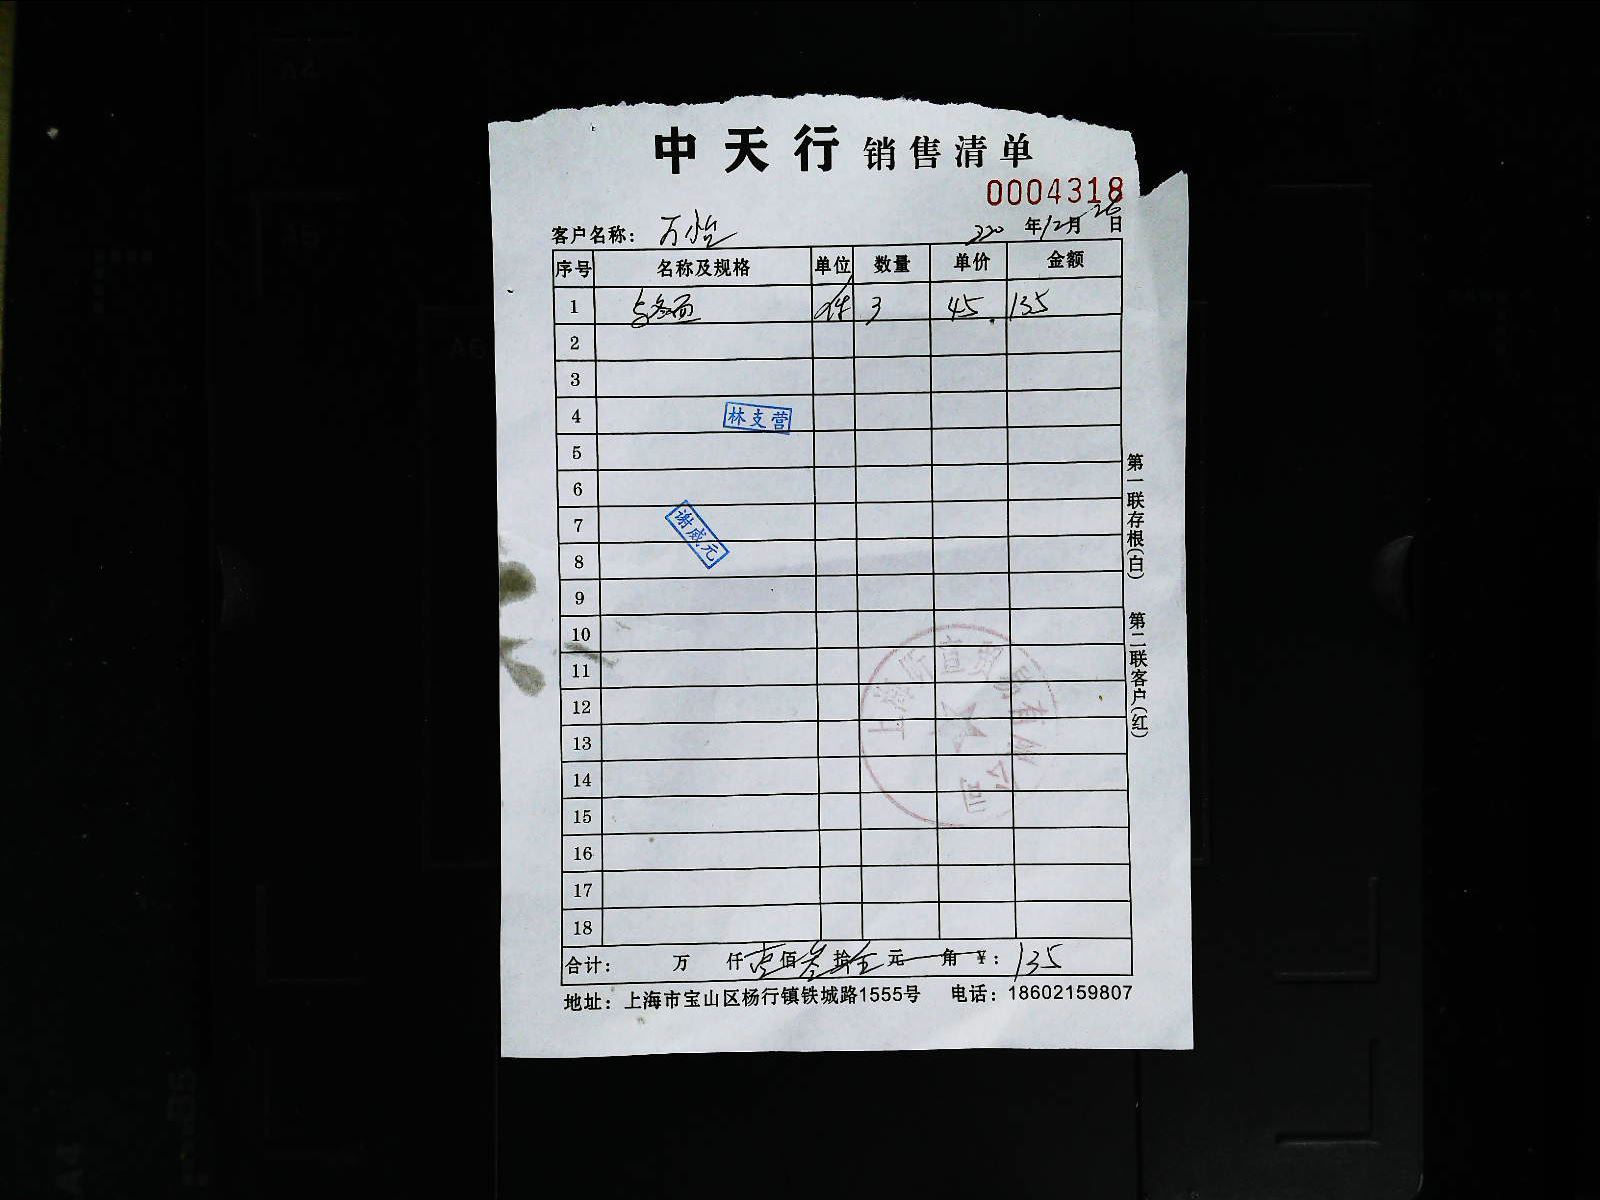 中天行 销售清单
0004318
客户名称： 万怡 年12月26日
序号 名称及规格 单位 数量 单价 金额
1 件 3 45. 135
2
3
4 林支营
5
6
7 谢威元
8
9
10
11
12
13
14
15
16
17
18
上海 贸易有限公司
合计： 万 仟壹佰叁拾伍元 角 ¥：135
地址：上海市宝山区杨行镇铁城路1555号 电话：18602159807
第一联存根(白)
第二联客户(红)